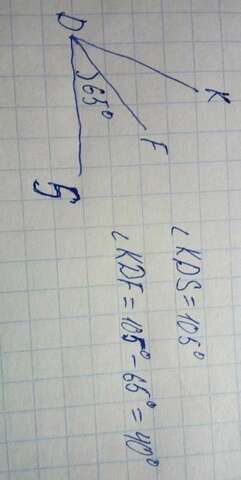 D
K
65°
F
S
∠KDS=105°
∠KDF=105°-65°=40°